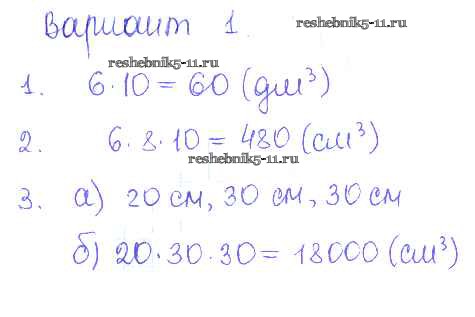 Вариант 1.
reshebnik5-11.ru
reshebnik5-11.ru
1. 6·10 = 60 (дм³)
2. 6·8·10 = 480 (см³)
reshebnik5-11.ru
3. а) 20 см, 30 см, 30 см
б) 20·30·30 = 18000 (см³)